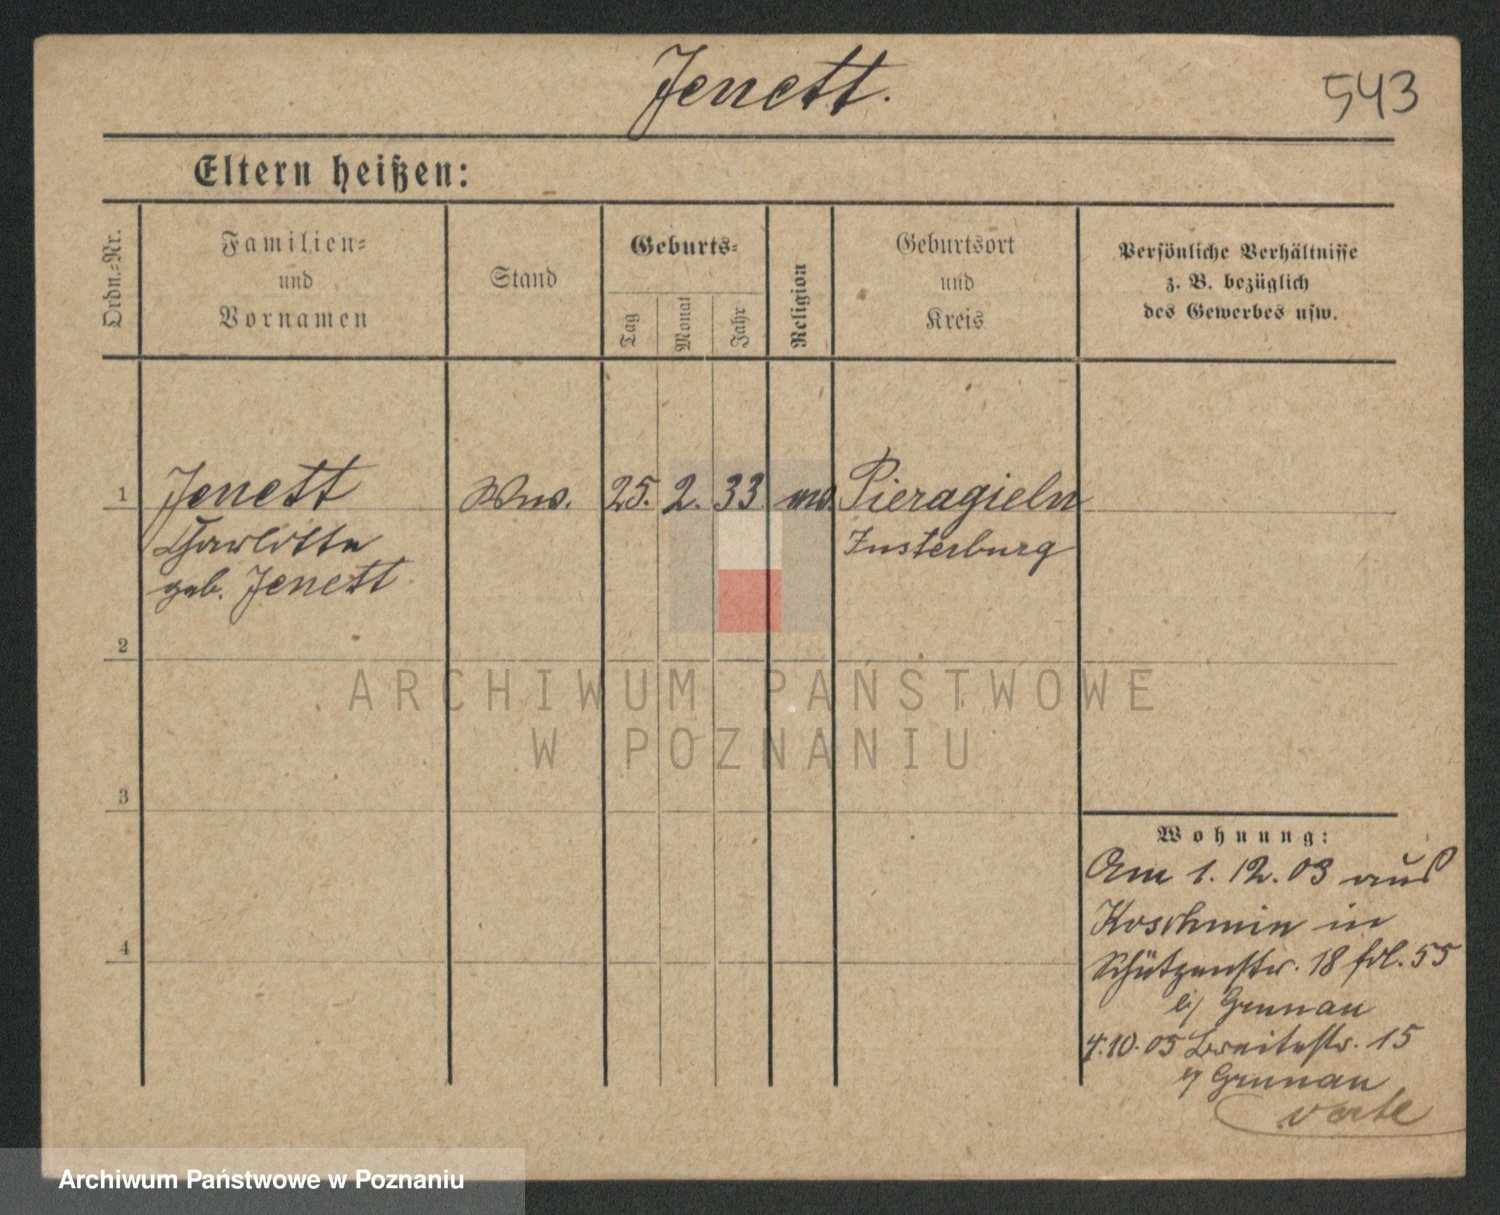 Jenett.
543
Eltern heißen:
Ordn.=Nr.
Familien=
und
Vornamen
Stand
Geburts=
Tag
Monat
Jahr
Religion
Geburtsort
und
Kreis
Persönliche Verhältnisse
z. B. bezüglich
des Gewerbes usw.
1 Jenett Wwe. 25. 2. 33 Pieragieln
Charlotte Insterburg
geb. Jenett
2
3
4
ARCHIWUM PAŃSTWOWE
W POZNANIU
Wohnung:
Am 1. 12. 03 aus
Koschmin in
Schützenstr. 18 fol. 55
b/ Grunau
4.10.05 Breitestr. 15
b/ Grunau
verte
Archiwum Państwowe w Poznaniu